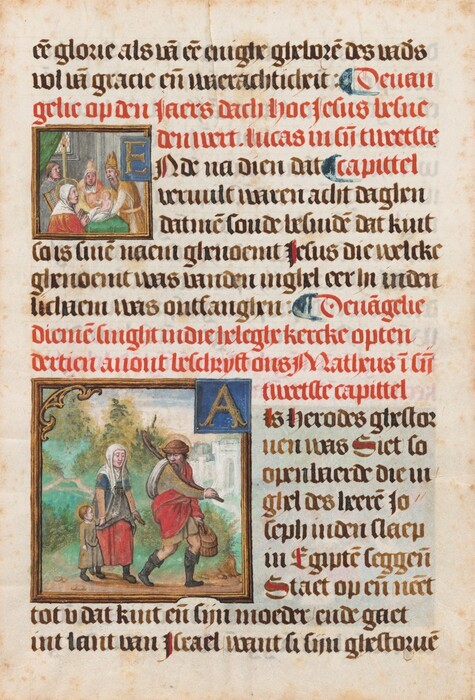 cē glorie als vā eē enighe ghelborē des vad's
vol vā gracie eñ waerachticheit : Deuan
gelie op den Jaers dach hoe Jesus besne
den wert. lucas in sijn tweetste
ENde na dien dat capittel
veruult waren acht daghen
datmē soude besnidē dat kint
so is sinē naem ghenoemt Jesus die welcke
ghenoemt was vanden inghel eer hi inden
lichaem was ontfanghen : Deuāgelie
diemē singht in die heleghe kercke op ten
dertien auont beschrijft ons Matheus ī sijn
tweetste capittel
Als herodes ghestor
uen was Siet so
openbaerde die in
ghel des heerē Jo
seph inden slaep
in Egiptē seggeñ
Staet op eñ neēt
tot v dat kint eñ sijn moeder ende gaet
int lant van Israel want si sijn ghestoruē